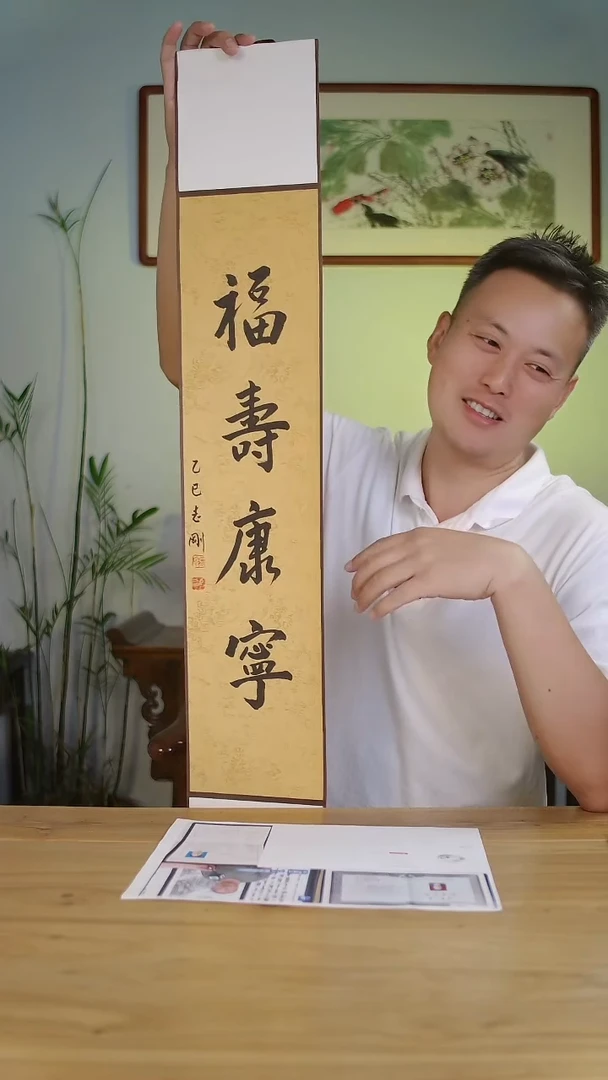 福壽康寧
乙巳志剛